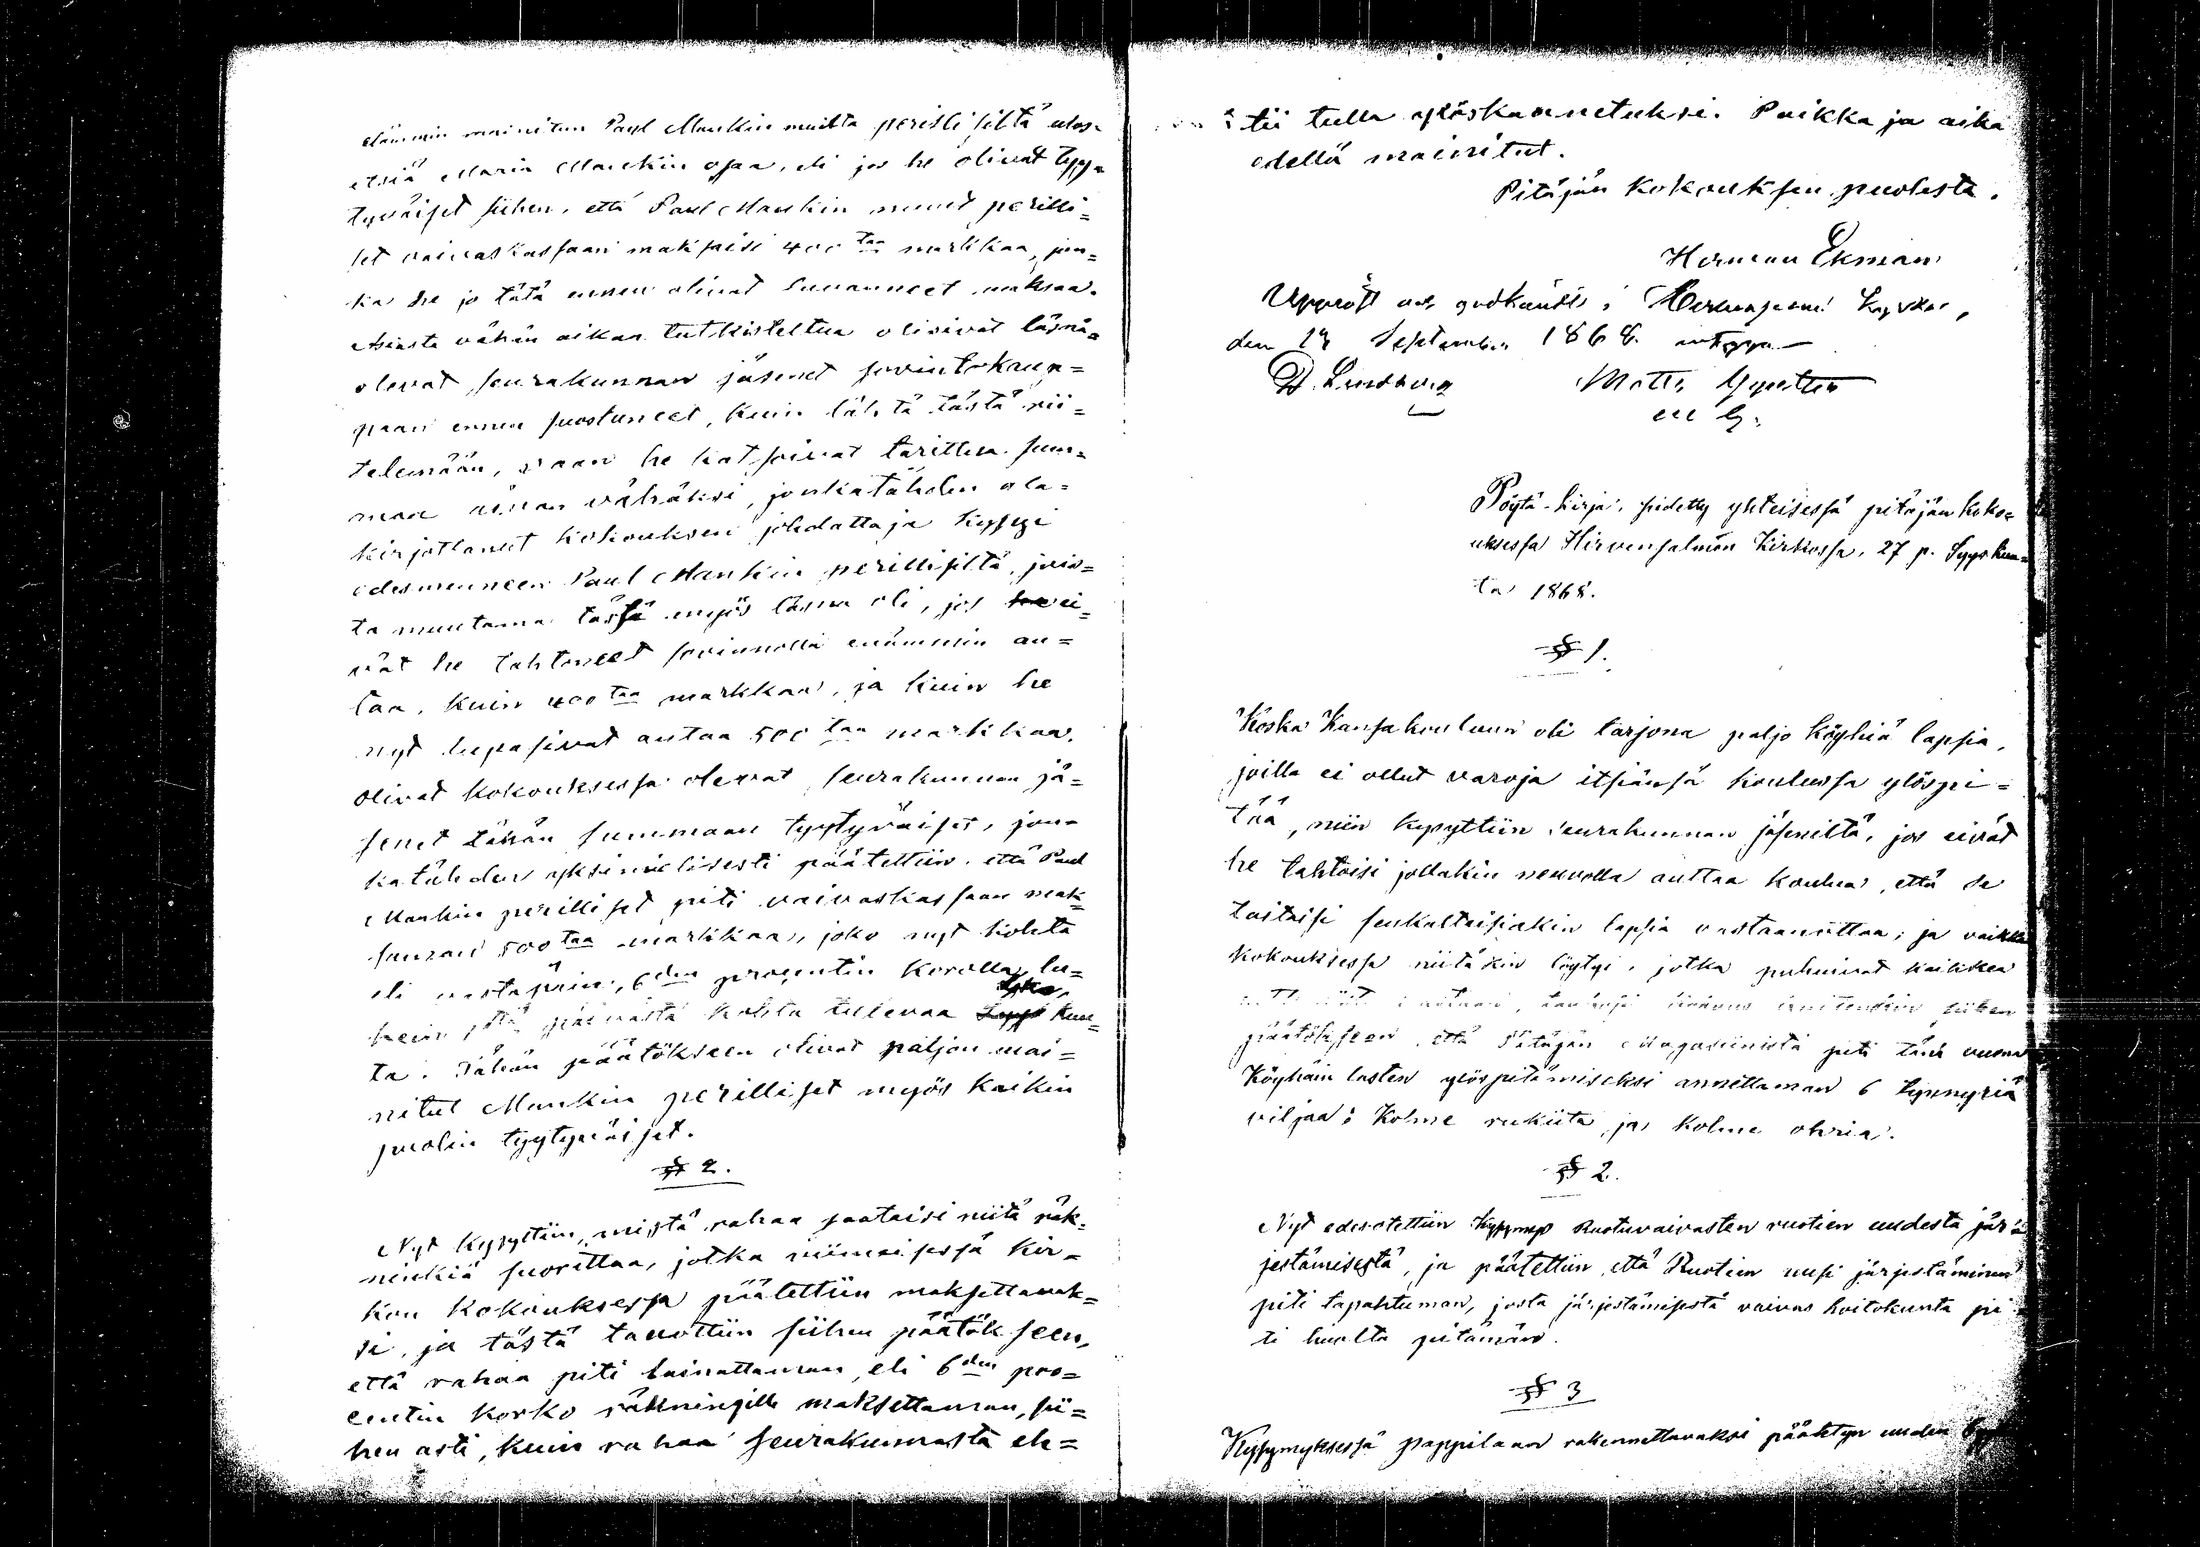 mainitun Paul Mankin muilta perillisiltä ulos=
etsiä Maria Mankin osaa, eli jos he olivat tyy=
tyväiset siihen, että Paul Mankin muut perilli=
set vaivaskassaan maksaisi 400 taa markkaa, jon=
ka he jo tätä ennen olivat luvanneet maksaa.
Asiasta vähän aikaa tutkisteltua olisivat läsnä=
olevat seurakunnan jäsenet sovintokaup=
paan ennen suostuneet, kuin lähtä tästä rii=
telemään, vaan he katsoivat taritun sum=
man aivan vähäksi, jonkatähden ala=
kirjottanut kokouksen johdattaja kysyi
edesmenneen Paul Mankin perillisiltä, jois=
ta muutama tässä myös läsnä oli, jos ei=
vät he tahtoneet sovinnolla enämmin an=
taa, kuin 400 taa markkaa, ja kuin he
nyt lupasivat antaa 500 taa markkaa,
olivat kokouksessa olevat seurakunnan jä=
senet tähän summaan tyytyväiset, jon=
katähden yksimielisesti päätettiin, että Paul
Mankin perilliset piti vaivaskassaan mak=
saman 500 taa markkaa, joko nyt kohta
eli vastapäin, 6 den prosentin korolla, lu=
kein päivästä kohta tulevaa kuu=
ta. Tähän päätökseen olivat paljon mai=
nitut Mankin perilliset myös kaikin
puolin tyytyväiset.
§ 2.
Nyt kysyttiin, mistä rahaa saataisi niitä räk=
ninkiä suorittaa, jotka viimeisessä kir=
kon kokouksessa päätettiin maksettavak=
si, ja tästä tavottiin siihen päätökseen,
että rahaa piti lainattaman, eli 6 den pro=
centin korko räkningille maksettaman, sii=
hen asti, kuin rahaa seurakunnasta eh=
tii tulla ylöskannetuksi. Paikka ja aika
edellä mainitut.
Pitäjän kokouksen puolesta.
Herman Ekman
Uppläst och godkändt i Hirvensalmi Kyrka,
den 27 September 1868. intyga
D. Lindberg Matts
Pöytä-kirja, pidetty yhteisessä pitäjän koko=
uksessa Hirvensalmen Kirkossa, 27 p. Syyskuu=
ta 1868.
§ 1.
Koska Kansakouluun oli tarjona paljo köyhiä lapsia,
joilla ei ollut varoja itsiänsä koulussa ylöspi=
tää, niin kysyttiin seurakunnan jäseniltä, jos eivät
he tahtoisi jollakin neuvolla auttaa koulua, että se
taitaisi senkaltaisiakin lapsia vastaanottaa; ja vaikka
kokouksessa niitäkin löytyi, jotka puhuivat kaikkea
siihen
päätökseen, että Pitäjän Magasiinista piti tänä vuonna
Köyhäin lasten ylöspitämiseksi annettaman 6 tynnyriä
viljaa: Kolme rukiita ja kolme ohria.
§ 2.
Nyt edesotettiin kysymys Ruotuvaivasten ruotien uudesta jär=
jestämisestä, ja päätettiin, että Ruotien uusi järjestäminen
piti tapahtuman, josta järjestämisestä vaivas hoitokunta pi=
ti huolta pitämän.
§ 3
Kysymyksessä pappilaan rakennettavaksi päätetyn uuden